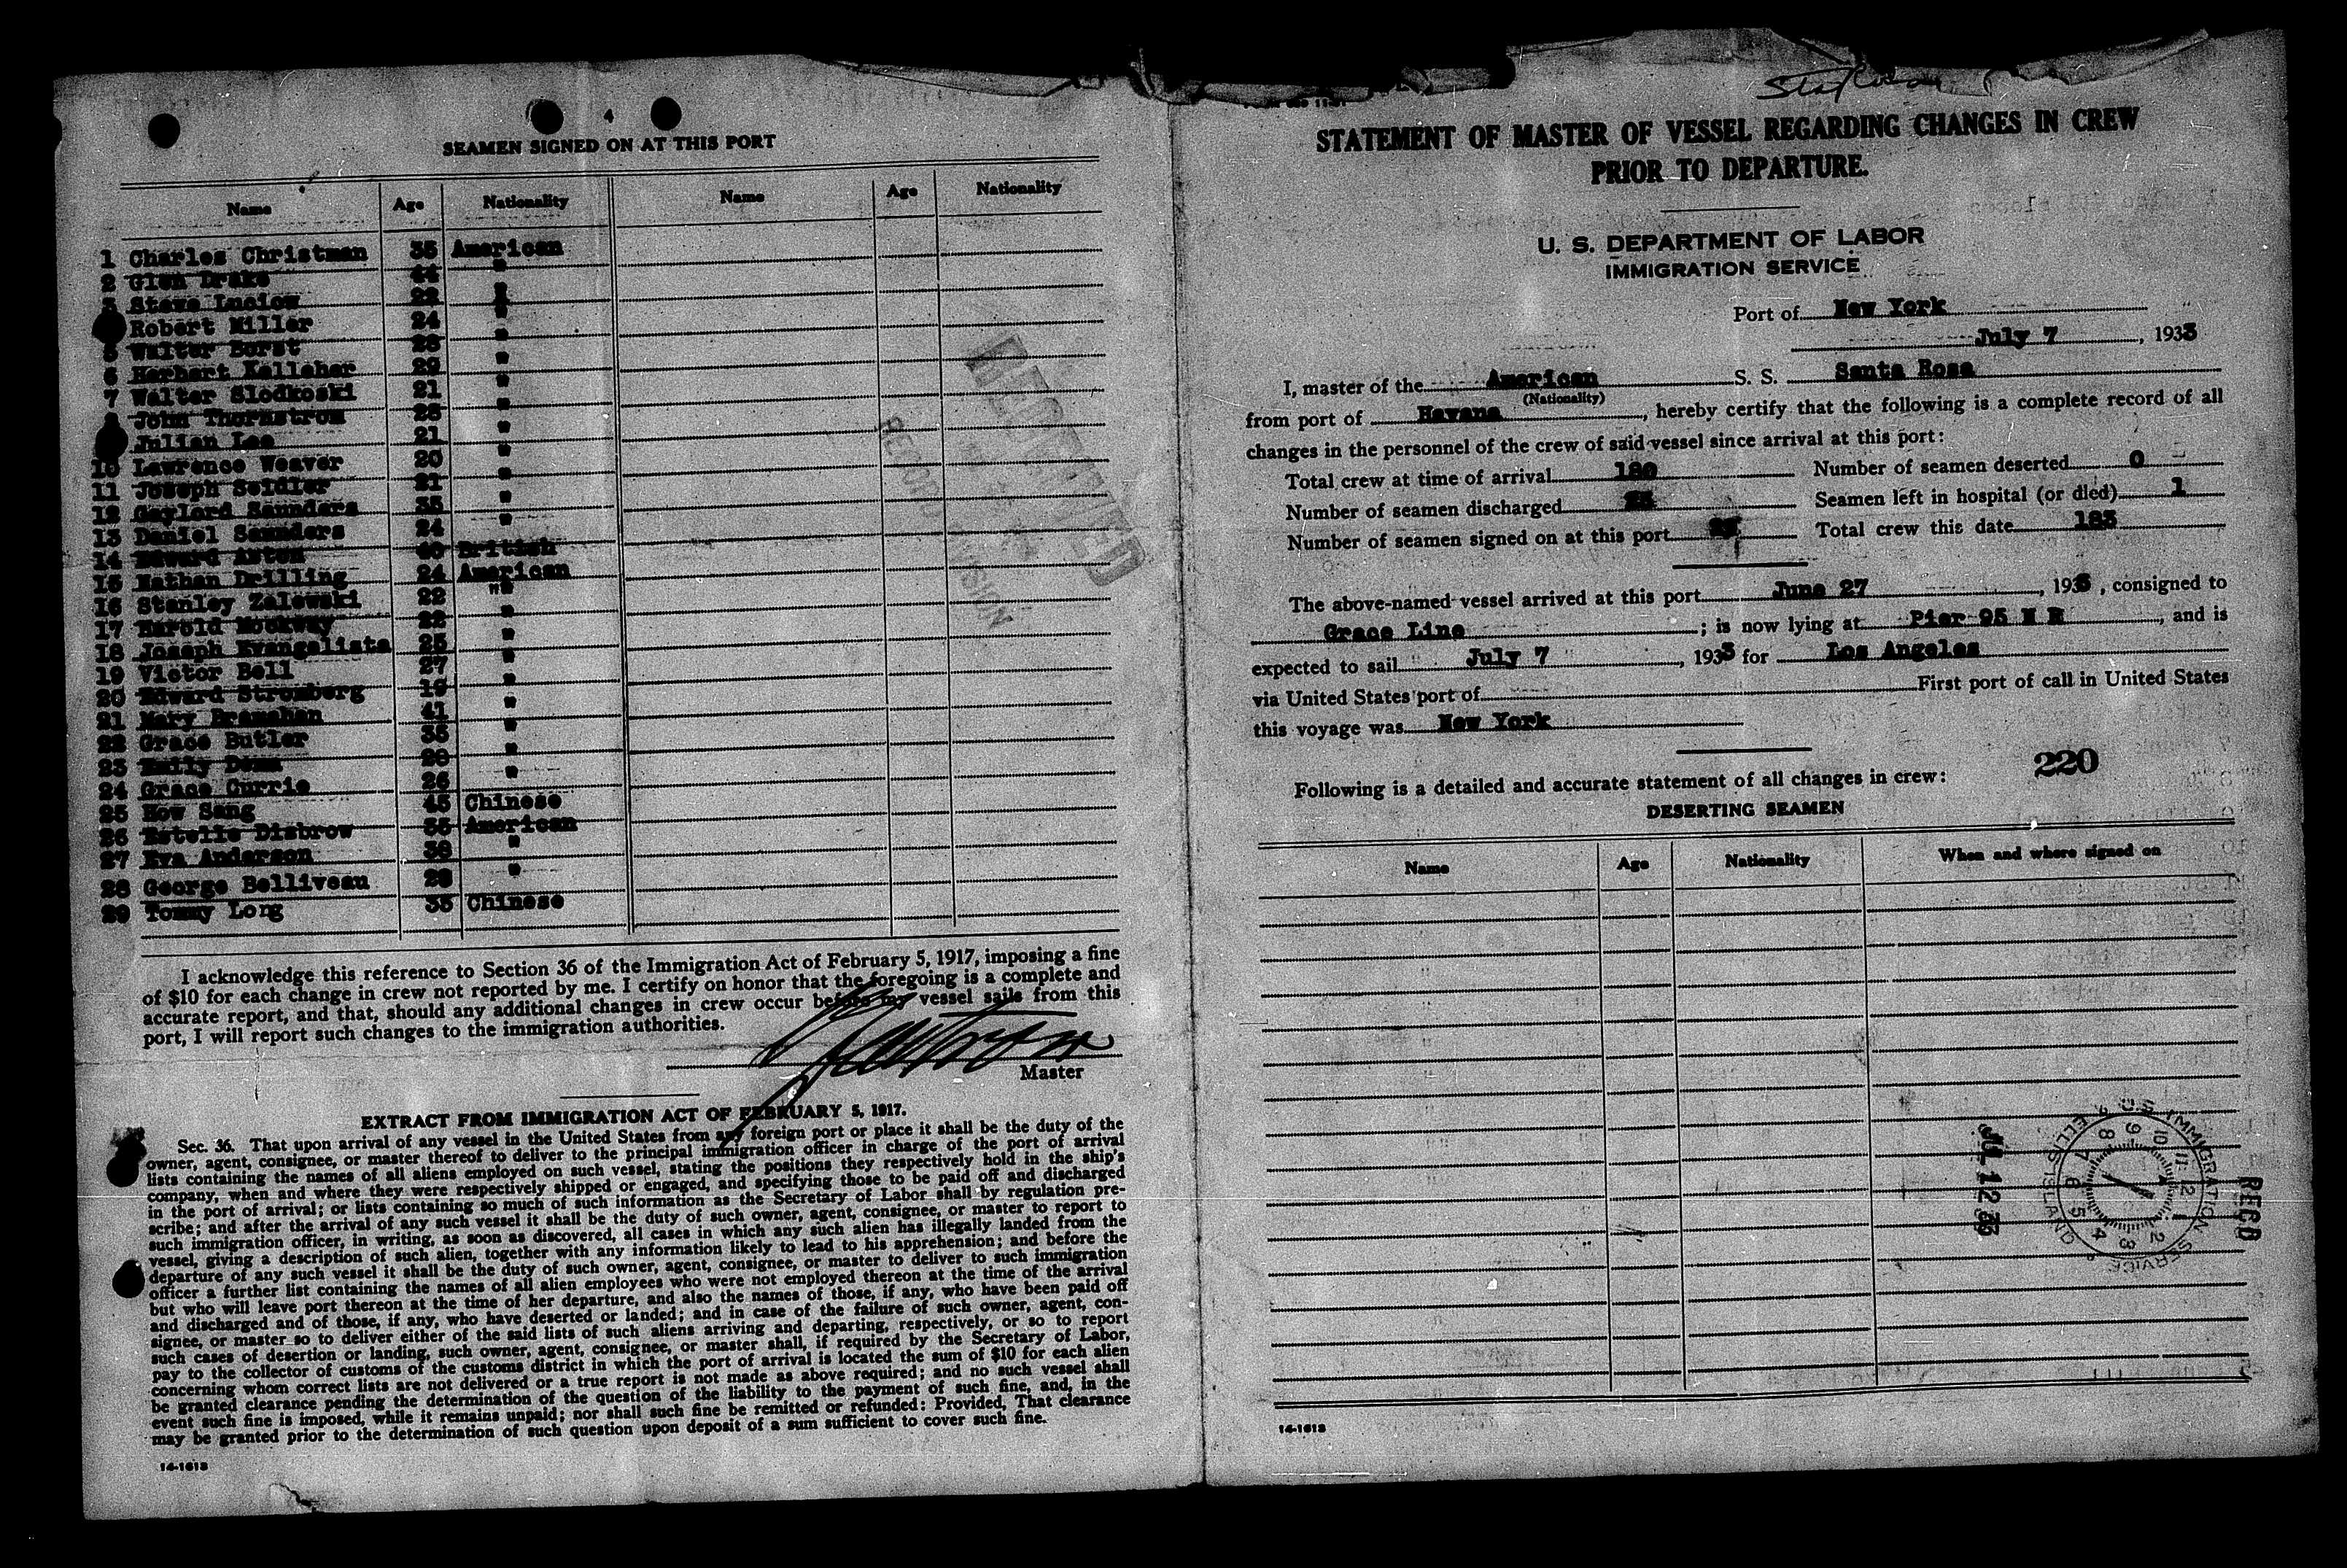 4
SEAMEN SIGNED ON AT THIS PORT
Name Age Nationality Name Age Nationality
1 Charles Christman 35 American
2 Glen Drake 44 "
3 Steve Luciow 22 "
Robert Miller 24 "
5 Walter Borst 28 "
6 Herbert Kelleher 29 "
7 Walter Slodkoski 21 "
8 John Thornstrom 28 "
Julian Lee 21 "
10 Lawrence Weaver 20 "
11 Joseph Seidler 21 "
12 Gaylord Saunders 35 "
13 Daniel Saunders 24 "
14 Edward Axton 40 British
15 Nathan Drilling 24 American
16 Stanley Zalewski 22 "
17 Harold 22 "
18 Joseph Evangelista 25 "
19 Victor Bell 27 "
20 Edward Stromberg 19 "
21 Mary Branahan 41 "
22 Grace Butler 35 "
23 Emily 28 "
24 Grace Currie 26 "
25 How Sang 45 Chinese
26 Estelle Disbrow 35 American
27 Eva Anderson 38 "
28 George Belliveau 28 "
29 Tommy Long 35 Chinese
RECEIVED
RECORD DIVISION
I acknowledge this reference to Section 36 of the Immigration Act of February 5, 1917, imposing a fine
of $10 for each change in crew not reported by me. I certify on honor that the foregoing is a complete and
accurate report, and that, should any additional changes in crew occur before my vessel sails from this
port, I will report such changes to the immigration authorities.
Master
EXTRACT FROM IMMIGRATION ACT OF FEBRUARY 5, 1917.
Sec. 36. That upon arrival of any vessel in the United States from any foreign port or place it shall be the duty of the
owner, agent, consignee, or master thereof to deliver to the principal immigration officer in charge of the port of arrival
lists containing the names of all aliens employed on such vessel, stating the positions they respectively hold in the ship's
company, when and where they were respectively shipped or engaged, and specifying those to be paid off and discharged
in the port of arrival; or lists containing so much of such information as the Secretary of Labor shall by regulation pre-
scribe; and after the arrival of any such vessel it shall be the duty of such owner, agent, consignee, or master to report to
such immigration officer, in writing, as soon as discovered, all cases in which any such alien has illegally landed from the
vessel, giving a description of such alien, together with any information likely to lead to his apprehension; and before the
departure of any such vessel it shall be the duty of such owner, agent, consignee, or master to deliver to such immigration
officer a further list containing the names of all alien employees who were not employed thereon at the time of the arrival
but who will leave port thereon at the time of her departure, and also the names of those, if any, who have been paid off
and discharged and of those, if any, who have deserted or landed; and in case of the failure of such owner, agent, con-
signee, or master so to deliver either of the said lists of such aliens arriving and departing, respectively, or so to report
such cases of desertion or landing, such owner, agent, consignee, or master shall, if required by the Secretary of Labor,
pay to the collector of customs of the customs district in which the port of arrival is located the sum of $10 for each alien
concerning whom correct lists are not delivered or a true report is not made as above required; and no such vessel shall
be granted clearance pending the determination of the question of the liability to the payment of such fine, and, in the
event such fine is imposed, while it remains unpaid; nor shall such fine be remitted or refunded: Provided, That clearance
may be granted prior to the determination of such question upon deposit of a sum sufficient to cover such fine.
14-1613
STATEMENT OF MASTER OF VESSEL REGARDING CHANGES IN CREW
PRIOR TO DEPARTURE.
U. S. DEPARTMENT OF LABOR
IMMIGRATION SERVICE
Port of New York
July 7, 1933
I, master of the American S. S. Santa Rosa
(Nationality)
from port of Havana, hereby certify that the following is a complete record of all
changes in the personnel of the crew of said vessel since arrival at this port:
Total crew at time of arrival 180 Number of seamen deserted 0
Number of seamen discharged 25 Seamen left in hospital (or died) 1
Number of seamen signed on at this port 29 Total crew this date 183
The above-named vessel arrived at this port June 27, 1933, consigned to
Grace Line; is now lying at Pier 95 N R, and is
expected to sail July 7, 1933 for Los Angeles
via United States port of First port of call in United States
this voyage was New York
220
Following is a detailed and accurate statement of all changes in crew:
DESERTING SEAMEN
Name Age Nationality When and where signed on
U.S. IMMIGRATION SERVICE ELLIS ISLAND
1 2 3 4 5 6 7 8 9 10 11 12
JUL 12 33
RECD
14-1613